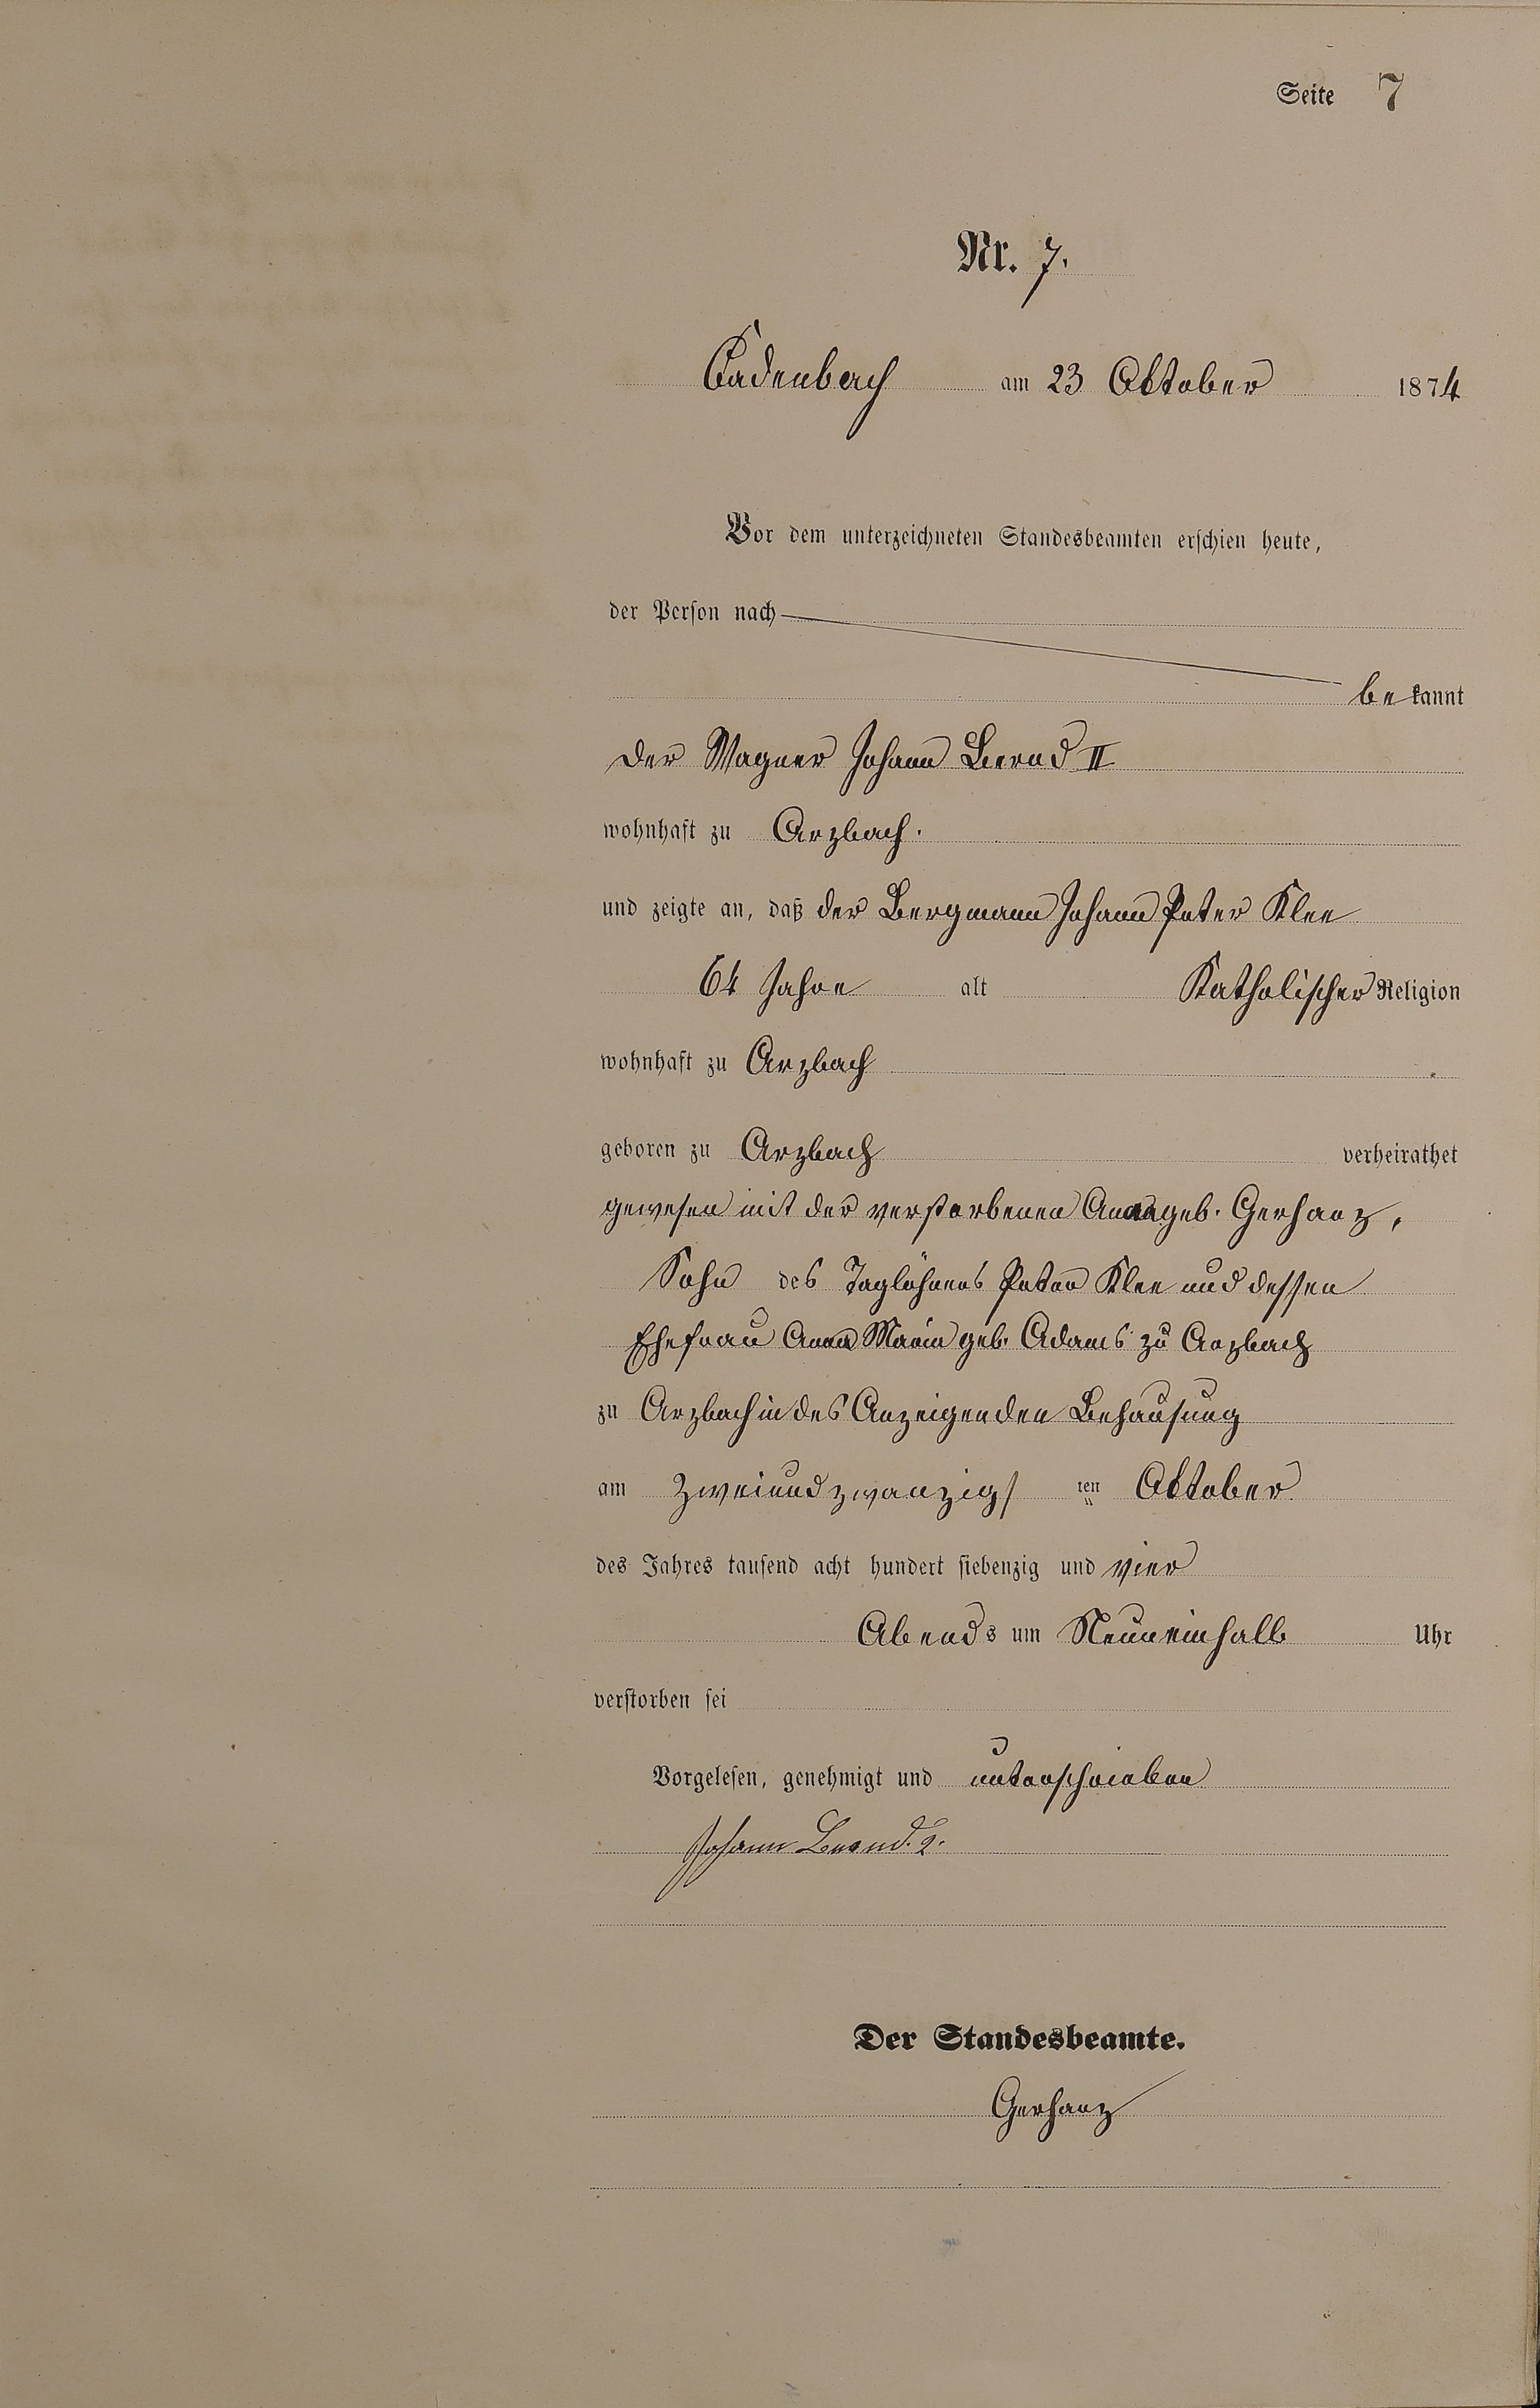 Seite 7
Nr. 7.
Cadenbach am 23 Oktober 1874
Vor dem unterzeichneten Standesbeamten erschien heute,
der Person nach
bekannt
der Wagner Johann Bernd II
wohnhaft zu Arzbach.
und zeigte an, daß der Bergmann Johann Peter Klee
64 Jahre alt Katholischer Religion
wohnhaft zu Arzbach
geboren zu Arzbach verheirathet
gewesen mit der verstorbenen Anna geb. Gerhanz,
Sohn des Taglöhners Peter Klee und dessen
Ehefrau Anna Maria geb. Adams zu Arzbach
zu Arzbach in des Anzeigenden Behausung
am zweiundzwanzigsten Oktober
des Jahres tausend acht hundert siebenzig und vier
Abends um Neuneinhalb Uhr
verstorben sei
Vorgelesen, genehmigt und unterschrieben
Johann Bernd. 2.
Der Standesbeamte.
Gerhanz